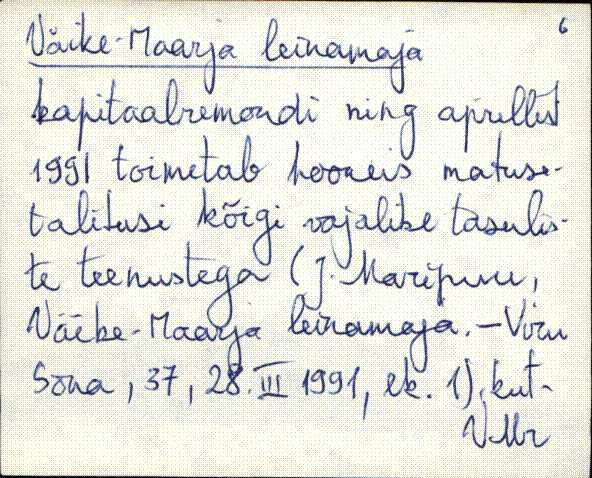 6
Väike-Maarja leinamaja
kapitaalremondi ning aprillist
1991 toimetab hooneis matuse-
talitusi kõigi vajalike tasulis-
te teenustega (J. Maripuu,
Väike-Maarja leinamaja. – Viru
Sõna, 37, 28. III 1991, lk. 1), kut-
VMr